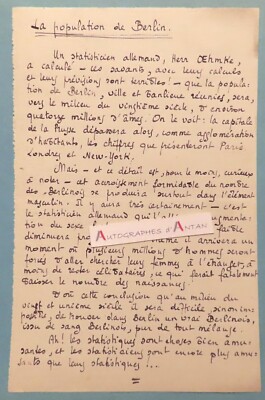 La population de Berlin.
Un statisticien allemand, Herr Oehmke,
a calculé - les savants, avec leurs calculs
et leurs prévisions sont terribles! - que la popula-
tion de Berlin, ville et banlieue réunies, sera,
vers le milieu du vingtième siècle, d'environ
quatorze millions d'âmes. On le voit: la capitale
de la Prusse dépassera alors, comme agglomération
d'habitants, les chiffres que présenteront Paris
Londres et New-York.
Mais - et ce détail est, pour le moins, curieux
à noter - cet accroissement formidable du nombre
des Berlinois se produira surtout dans l'élément
masculin. Il y aura très certainement - c'est
le statisticien allemand qui l'
AUTOGRAPHES D'ANTAN
du sexe
diminuera
même il arrivera un
moment où plusieurs millions d'hommes seront
forcés d'aller chercher leurs femmes à l'étranger, à
moins de rester célibataires, ce qui ferait fatalement
baisser le nombre des naissances.
D'où cette conclusion qu'au milieu du
vingt et unième siècle il sera difficile sinon im-
possible, de trouver dans Berlin un vrai Berlinois,
issu de sang Berlinois, pur de tout mélange.
Ah! les statistiques sont choses bien amu-
santes, et les statisticiens sont encore plus amu-
sants que leurs statistiques!...